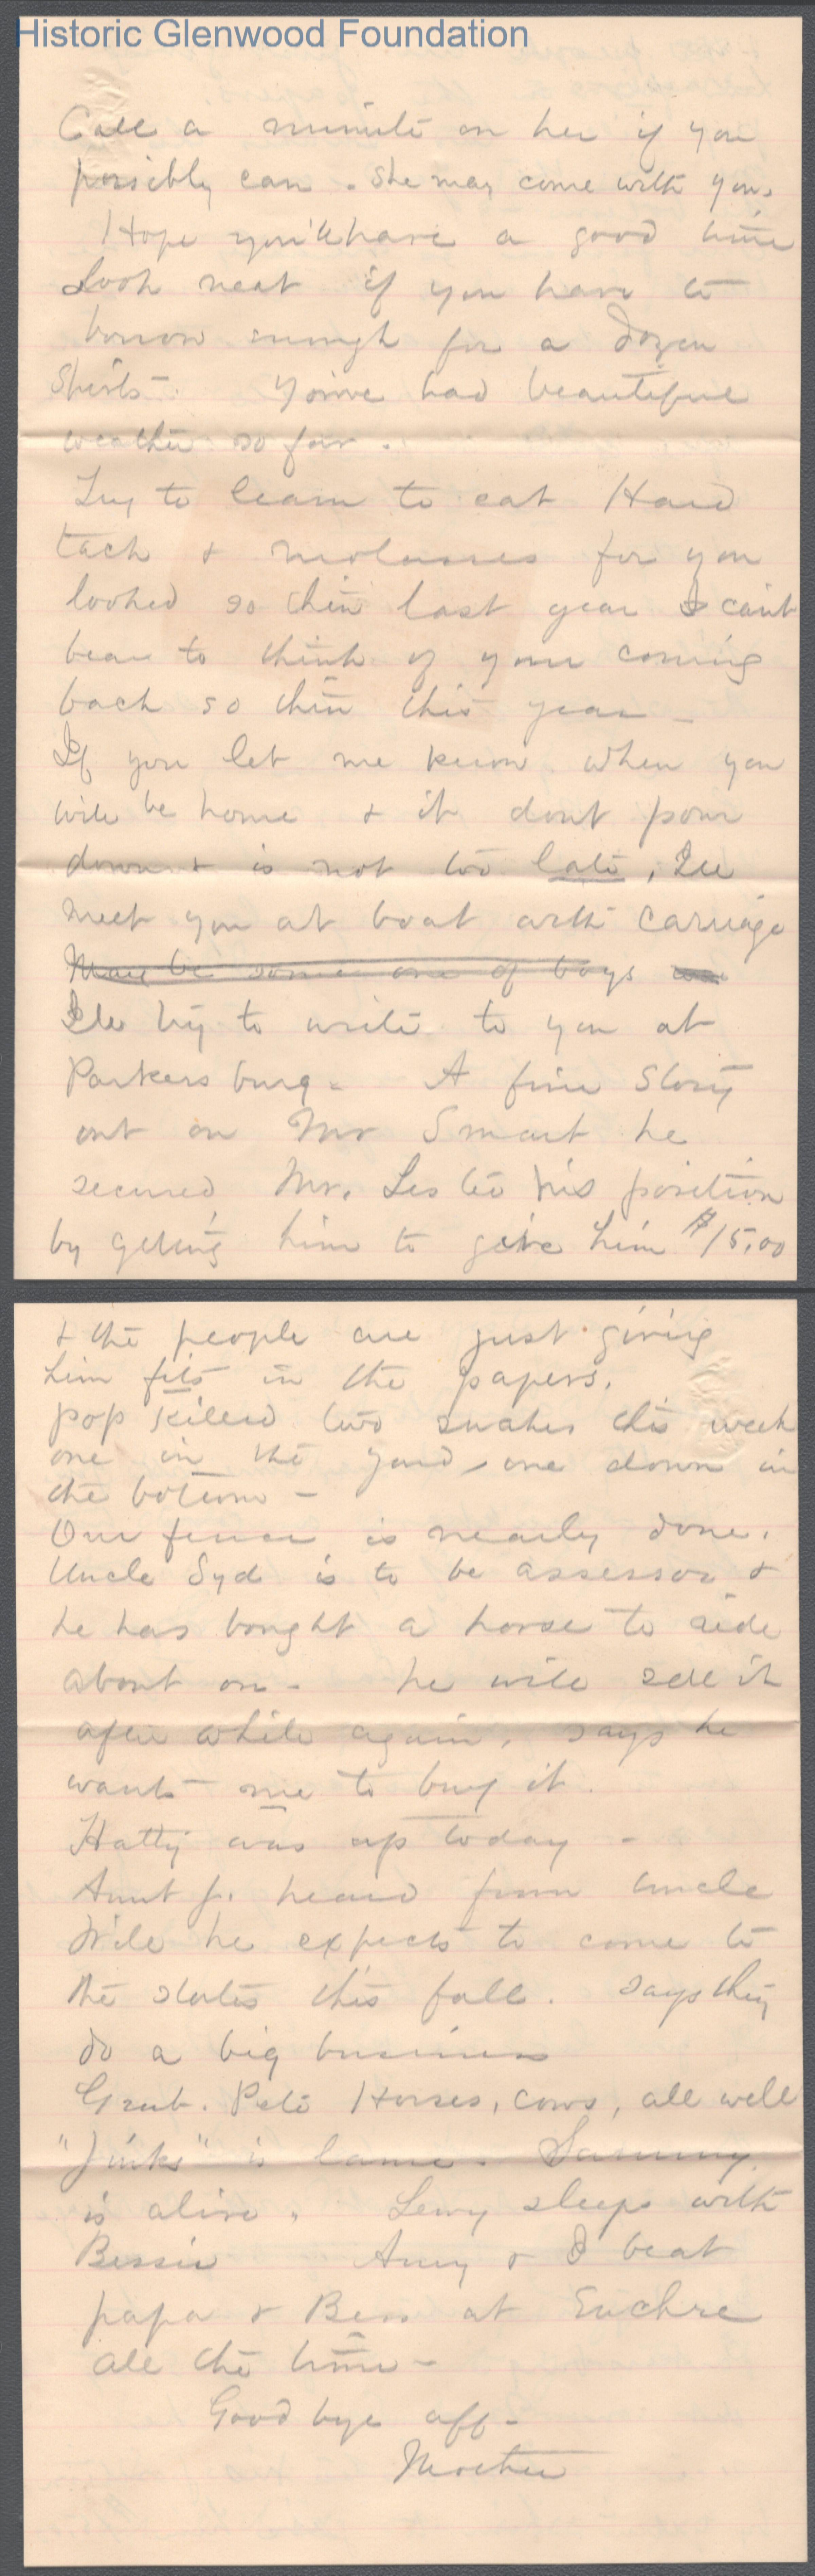 Historic Glenwood Foundation
Call a minute on her if you
possibly can. She may come with you.
Hope you'll have a good time
Look neat if you have to
borrow enough for a dozen
Shirts. You've had beautiful
weather so far.
Try to learn to eat Hard
tack & molasses for you
looked so thin last year I can't
bear to think of your coming
back so thin this year -
If you let me know when you
will be home & it dont pour
down & is not too late, Ill
meet you at boat with carriage
May be some one of boys
Ill try to write to you at
Parkersburg - A fine Story
out on Mr Smart he
secured Mr. Les his position
by getting him to give him $15.00
& the people are just giving
him fits in the papers.
pop killed two snakes this week
one in the yard, one down in
the bottom -
Our fence is nearly done.
Uncle Syd is to be assessor &
he has bought a horse to ride
about on - he will sell it
after while again, says he
wants me to buy it.
Hatty was up today -
Aunt J. heard from Uncle
Will he expects to come to
the states this fall. says they
do a big business
Grub. Pete Horses, cows, all well
"Jinks" is lame. Sammy
is alive. Lewy sleeps with
Bessie Amy & I beat
papa & Bess at Euchre
all the time -
Good bye aff -
Mother